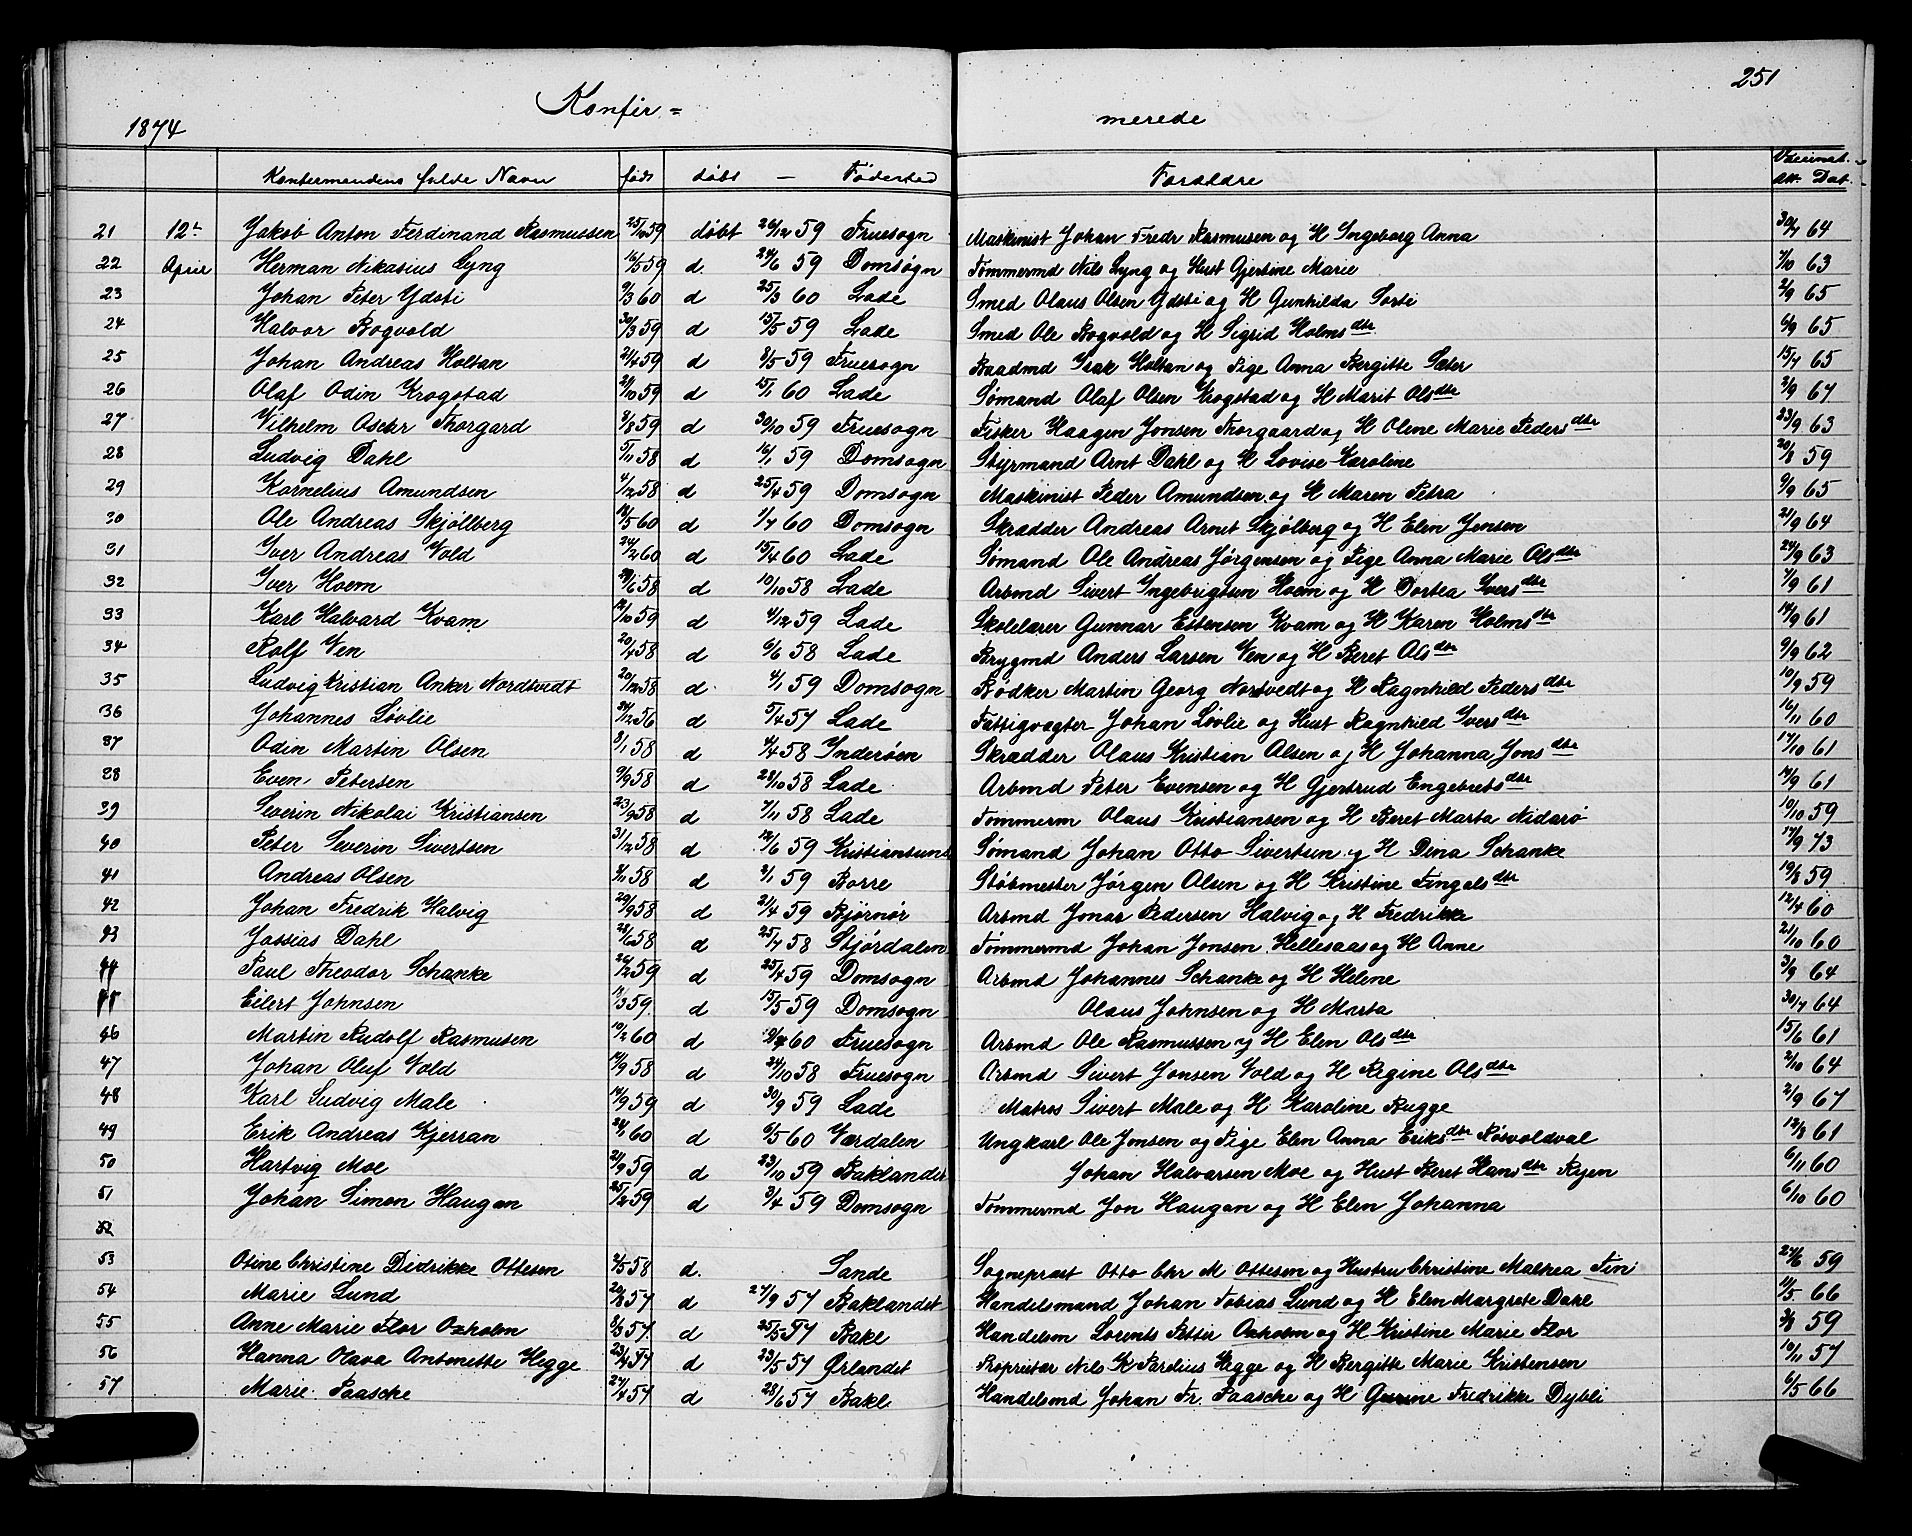 251
Konfir = merede
1874
Konfermandens fulde Navn født døbt — Fødested Forældre Vaccinat. Att. Dat.
21 12te Jakob Anton Ferdinand Rasmussen 59 døbt 26/12 59 Fruesogn Maskinist Johan Fredr Rasmusen og H Ingeborg Anna 30/7 64
22 April Herman Nikasius Lyng 16/5 59 d. 24/6 59 Domsogn Tømmermd Nils Lyng og Hust Gjertine Marie 7/10 63
23 Johan Peter Ydsti 9/3 60 d 25/3 60 Lade Smed Olaus Olsen Ydsti og H Gunhilda Sorti 2/9 65
24 Halvor Bogvold 30/3 59 d 15/5 59 Lade Smed Ole Bogvold og H Sigrid Holmsdtr 6/9 65
25 Johan Andreas Holtan 21/4 59 d 8/5 59 Fruesogn Baadmd Isak Holtan og Pige Anna Bergitte Sæter 15/7 65
26 Olaf Odin Krogstad 21/10 59 d 15/1 60 Lade Sømand Olaf Olsen Krogstad og H Marit Olsdtr 2/9 67
27 Vilhelm Oskar Thorgard 8/8 59 d 30/10 59 Fruesogn Fisker Haagen Jonsen Thorgaard og H Oline Marie Pedersdtr 23/9 63
28 Ludvig Dahl 5/11 58 d 16/1 59 Domsogn Styrmand Arnt Dahl og H Lovise Karoline 20/8 59
29 Kornelius Amundsen 4/12 58 d 25/4 59 Domsogn Maskinist Peder Amundsen og H Maren Petra 9/9 65
30 Ole Andreas Skjøllberg 14/5 60 d 1/7 60 Domsogn Skrædder Andreas Arnt Skjølberg og H Elen Jensen 21/9 64
31 Iver Andreas Vold 24/2 60 d 15/4 60 Lade Sømand Ole Andreas Jørgensen og Pige Anna Marie Olsdtr 24/9 63
32 Iver Hoem 29/6 58 d 10/10 58 Lade Arbmd Sivert Ingebrigtsen Hoem og H Dortea Iversdtr 7/9 61
33 Karl Halvard Kvam 14/10 59 d 4/12 59 Lade Skolelærer Gunnar Estensen Kvam og H Karen Holmsdtr 14/9 61
34 Rolf Ven 20/4 58 d 6/6 58 Lade Brygmd Anders Larsen Ven og H Beret Olsdtr 9/9 62
35 Ludvig Kristian Anker Nordtvedt 20/12 58 d. 4/1 59 Domsogn Bødker Martin Georg Nortvedt og H Ragnhild Pedersdtr 10/9 59
36 Johannes Løvlie 24/12 56 d 5/4 57 Lade Fattigvogter Johan Løvlie og Hust Ragnhild Iversdtr 16/11 60
37 Odin Martin Olsen 3/1 58 d 4/4 58 Inderøen Skrædder Olaus Kristian Olsen og H Johanna Jonsdtr 17/10 61
38 Even Petersen 9/9 58 d 28/10 58 Lade Arbmd Peter Evensen og H Gjertrud Engebretsdtr 14/9 61
39 Severin Nikolai Kristiansen 23/9 58 d 7/11 58 Lade Tømmerm Olaus Kristiansen og H Beret Marta Nidarø 10/10 59
40 Peter Severin Sivertsen 31/12 58 d 12/6 59 Kristiansund Sømand Johan Otto Sivertsen og H Dina Schanke 17/9 73
41 Andreas Olsen 8/11 58 d 2/1 59 Borre Støbmester Jørgen Olsen og H Kristine Fingalsdtr 19/8 59
42 Johan Fredrik Halvig 29/9 58 d 21/4 59 Bjørnør Arbmd Jonas Pedersen Halvig og H Fredrikke 12/4 60
43 Jossias Dahl 28/6 58 d 25/7 58 Stjørdalen Tømmermd Johan Jonsen Hellesaas og H Anne 21/10 60
44 Paul Theodor Schanke 26/2 59 d 25/4 59 Domsogn Arbmd Johannes Schanke og H Helene 3/9 64
45 Eilert Johnsen 11/3 59. d 15/5 59 Domsogn Olaus Johnsen og H Marta 30/7 64
46 Martin Rudolf Rasmusen 10/2 60 d 60 Fruesogn Arbmd Ole Rasmussen og H Elen Olsdtr 15/6 61
47 Johan Oluf Vold 14/9 58 d 24/10 58 Fruesogn Arbmd Sivert Jonsen Vold og H Regine Olsdtr 2/10 64
48 Karl Ludvig Male 14/9 59 d 30/9 59 Lade Matros Sivert Male og H Karoline Bugge 2/9 67
49 Erik Andreas Kjerran 24/1 60 d 6/5 60 Værdalen Ungkarl Ole Jonsen og Pige Elen Anna Eriksdtr Røsvoldval 12/8 61
50 Hartvig Moe 21/9 59 d 23/10 59 Baklandet Johan Halvarsen Moe og Hust Beret Hansdtr Ryen 6/11 60
51 Johan Simon Haugan 25/2 59 d 3/4 59 Domsogn Tømmermd Jon Haugan og H Elen Johanna 6/10 60
52
53 Otine Christine Didrikke Ottesen 2/5 58 d. Sande Sognepræst Otto Chr M Ottesen og Hustru Christine Mathea Fin 27/6 59
54 Marie Lund 20/8 57 d 27/9 57 Baklandet Handelsmand Johan Tobias Lund og H Elen Margrete Dahl 11/5 66
55 Anne Marie Flor Oxholm 8/3 57. d 25/5 57 Bakl Handelsm Lorents Petter Oxholm og H Kristine Marie Flor 3/8 59
56 Hanna Olava Antonette Hegge 23/4 57 d 23/5 57 Ørlandet Proprietær Nils K Pardius Hegge og H Bergitte Marie Kristensen 10/11 57
57 Marie Paasche 27/4 57 d 28/6 57 Bakl Handelsmd Johan Fr. Paasche og H Gurine Fredrikke Dybli 6/5 66